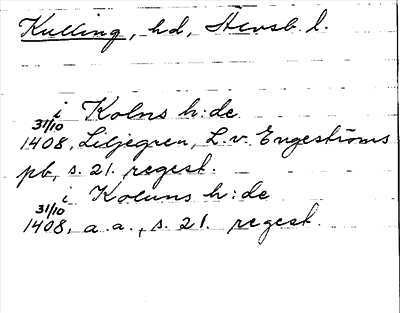 Kulling, hd, Älvsb. l.
i Kolns h:de
31/10
1408, Liljegren, L. v. Engeströms
pb, s. 21. regest.
i Koluns h:de
31/10
1408, a. a., s. 21. regest.